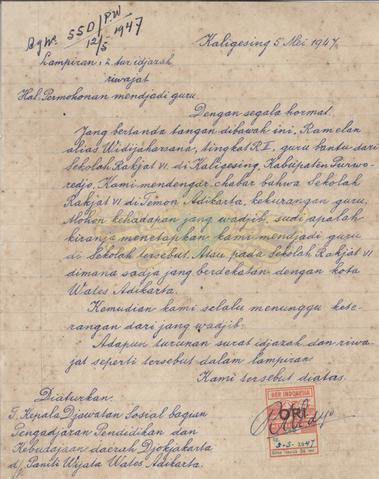 Ag No. 55D/P.W
12/5 1947
Kaligesing 5 Mei 1947.
Lampiran: 2 tur. idjazah
riwajat
Hal: Permohonan mendjadi guru.
Dengan segala hormat.
Jang bertanda tangan dibawah ini, Ramelan
alias Widijaharsana, tingkat R.I., guru bantu dari
Sekolah Rakjat VI. di Kaligesing, Kabupaten Purwo-
redjo. Kami mendengar chabar bahwa Sekolah
Rakjat VI di Temon Adikarta, kekurangan guru,
Mohon kehadapan jang wadjib, sudi apalah
kiranja menetapkan kami mendjadi guru
di Sekolah tersebut. Atau pada Sekolah Rakjat VI
dimana sadja jang berdekatan dengan kota
Wates Adikarta.
Kemudian kami selalu menunggu kete-
rangan dari jang wadjib.
Adapun turunan surat idjazah dan riwa-
jat seperti tersebut dalam lampiran
Kami tersebut diatas.
Diaturkan.
T. Kepala Djawatan Sosial bagian
Pengadjaran Pendidikan dan
Kebudajaan daerah Djokjakarta
d/p Paniti Wijata Wates Adikarta.
REP. INDONESIA
ORI
5-5-1947